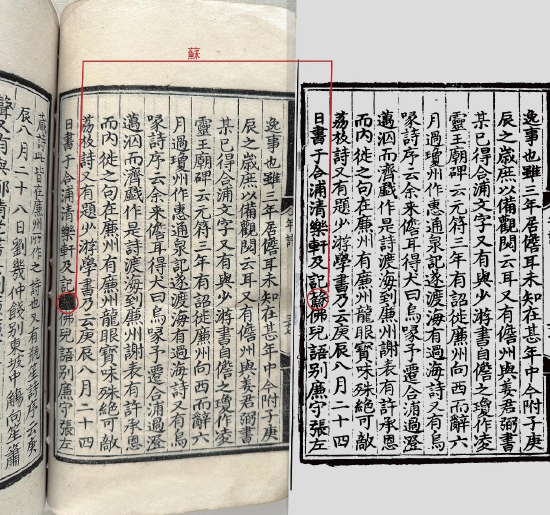 蘇
逸事也雖三年居儋耳未知在甚年中今附于庚
辰之歲庶以備觀閱云耳又有儋州與姜君弼書
某已得合浦文字又有與少游書自儋之瓊作夌
靈王廟碑云元符三年有詔徙廉州向西而辭六
月過瓊州作惠通泉記遂渡海有過海詩又有烏
喙詩序云余来儋耳得犬曰烏喙予遷合浦過澄
邁泅而濟戲作是詩渡海到廉州謝表有許承恩
而内徙之句在廉州有廉州龍眼寳味殊絕可敵
荔枝詩又有題少游學書乃云庚辰八月二十四
日書于合浦清樂軒及記蘇佛兒語别廉守張左
年譜
逸事也雖三年居儋耳未知在甚年中今附于庚
辰之歲庶以備觀閱云耳又有儋州與姜君弼書
某已得合浦文字又有與少游書自儋之瓊作夌
靈王廟碑云元符三年有詔徙廉州向西而辭六
月過瓊州作惠通泉記遂渡海有過海詩又有烏
喙詩序云余来儋耳得犬曰烏喙予遷合浦過澄
邁泅而濟戲作是詩渡海到廉州謝表有許承恩
而内徙之句在廉州有廉州龍眼寳味殊絕可敵
荔枝詩又有題少游學書乃云庚辰八月二十四
日書于合浦清樂軒及記佛兒語别廉守張左
藏詩此皆在廉州所作之詩也又有瓶笙詩序云庚
辰八月二十八日劉幾仲餞别東坡中觴聞笙簫
聲又有與鄭靖老書